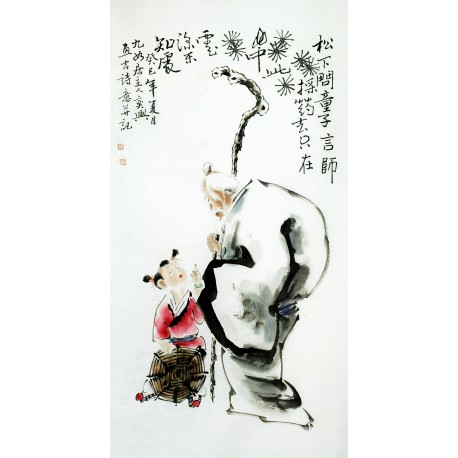 松下問童子言師
採药去只在
此
山中
雲
深不
知處
癸巳年夏月
九如居主人
画古诗意并記